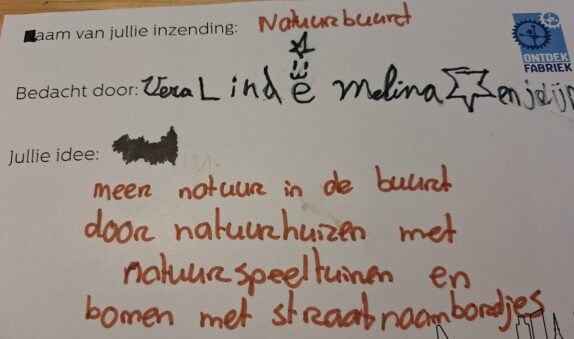 Naam van jullie inzending: Natuurbuurt
ONTDEK
FABRIEK
Bedacht door: Vera Linde Melina en
Jullie idee:
meer natuur in de buurt
door natuurhuizen met
natuurspeeltuinen en
bomen met straatnaambordjes